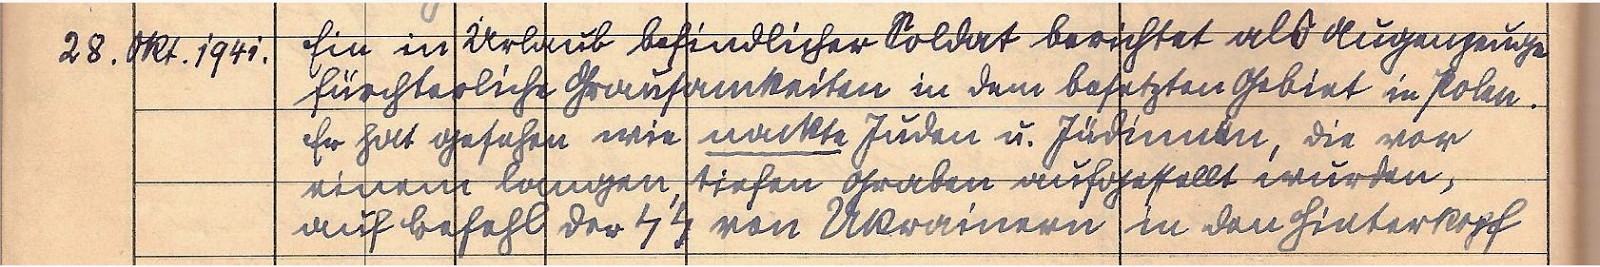 28. Okt. 1941. Ein in Urlaub befindlicher Soldat berichtet als Augenzeuge
fürchterliche Grausamkeiten in dem besetzten Gebiet in Polen.
Er hat gesehen wie nackte Juden u. Jüdinnen, die vor
einem langen, tiefen Graben aufgestellt wurden,
auf Befehl der SS von Ukrainern in den Hinterkopf